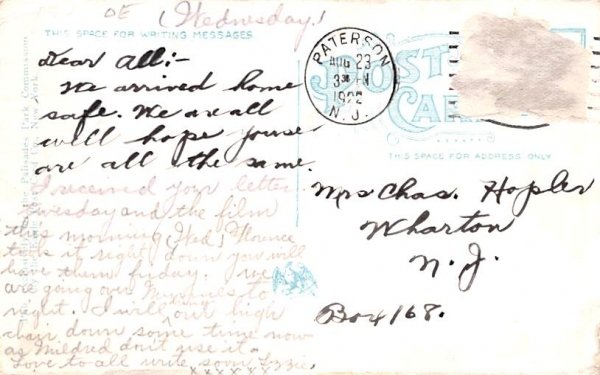 (Wednesday)
THIS SPACE FOR WRITING MESSAGES
Dear All:-
We arrived home
safe. We are all
well hope youse
are all the same.
I received your letter
Tuesday and the film
this morning (Wed) Florence
took it right down you will
have them friday. We
are going over to
night. I will our high
chair down some time now
as Mildred don't use it.
Love to all write soon Lizzie.
xxxxxxx
PATERSON
AUG 23
3 PM
1922
N. J.
POST CARD
THIS SPACE FOR ADDRESS ONLY
Mrs Chas. Hopler
Wharton
N. J.
Box 168.
Palisades Park Commission
New York